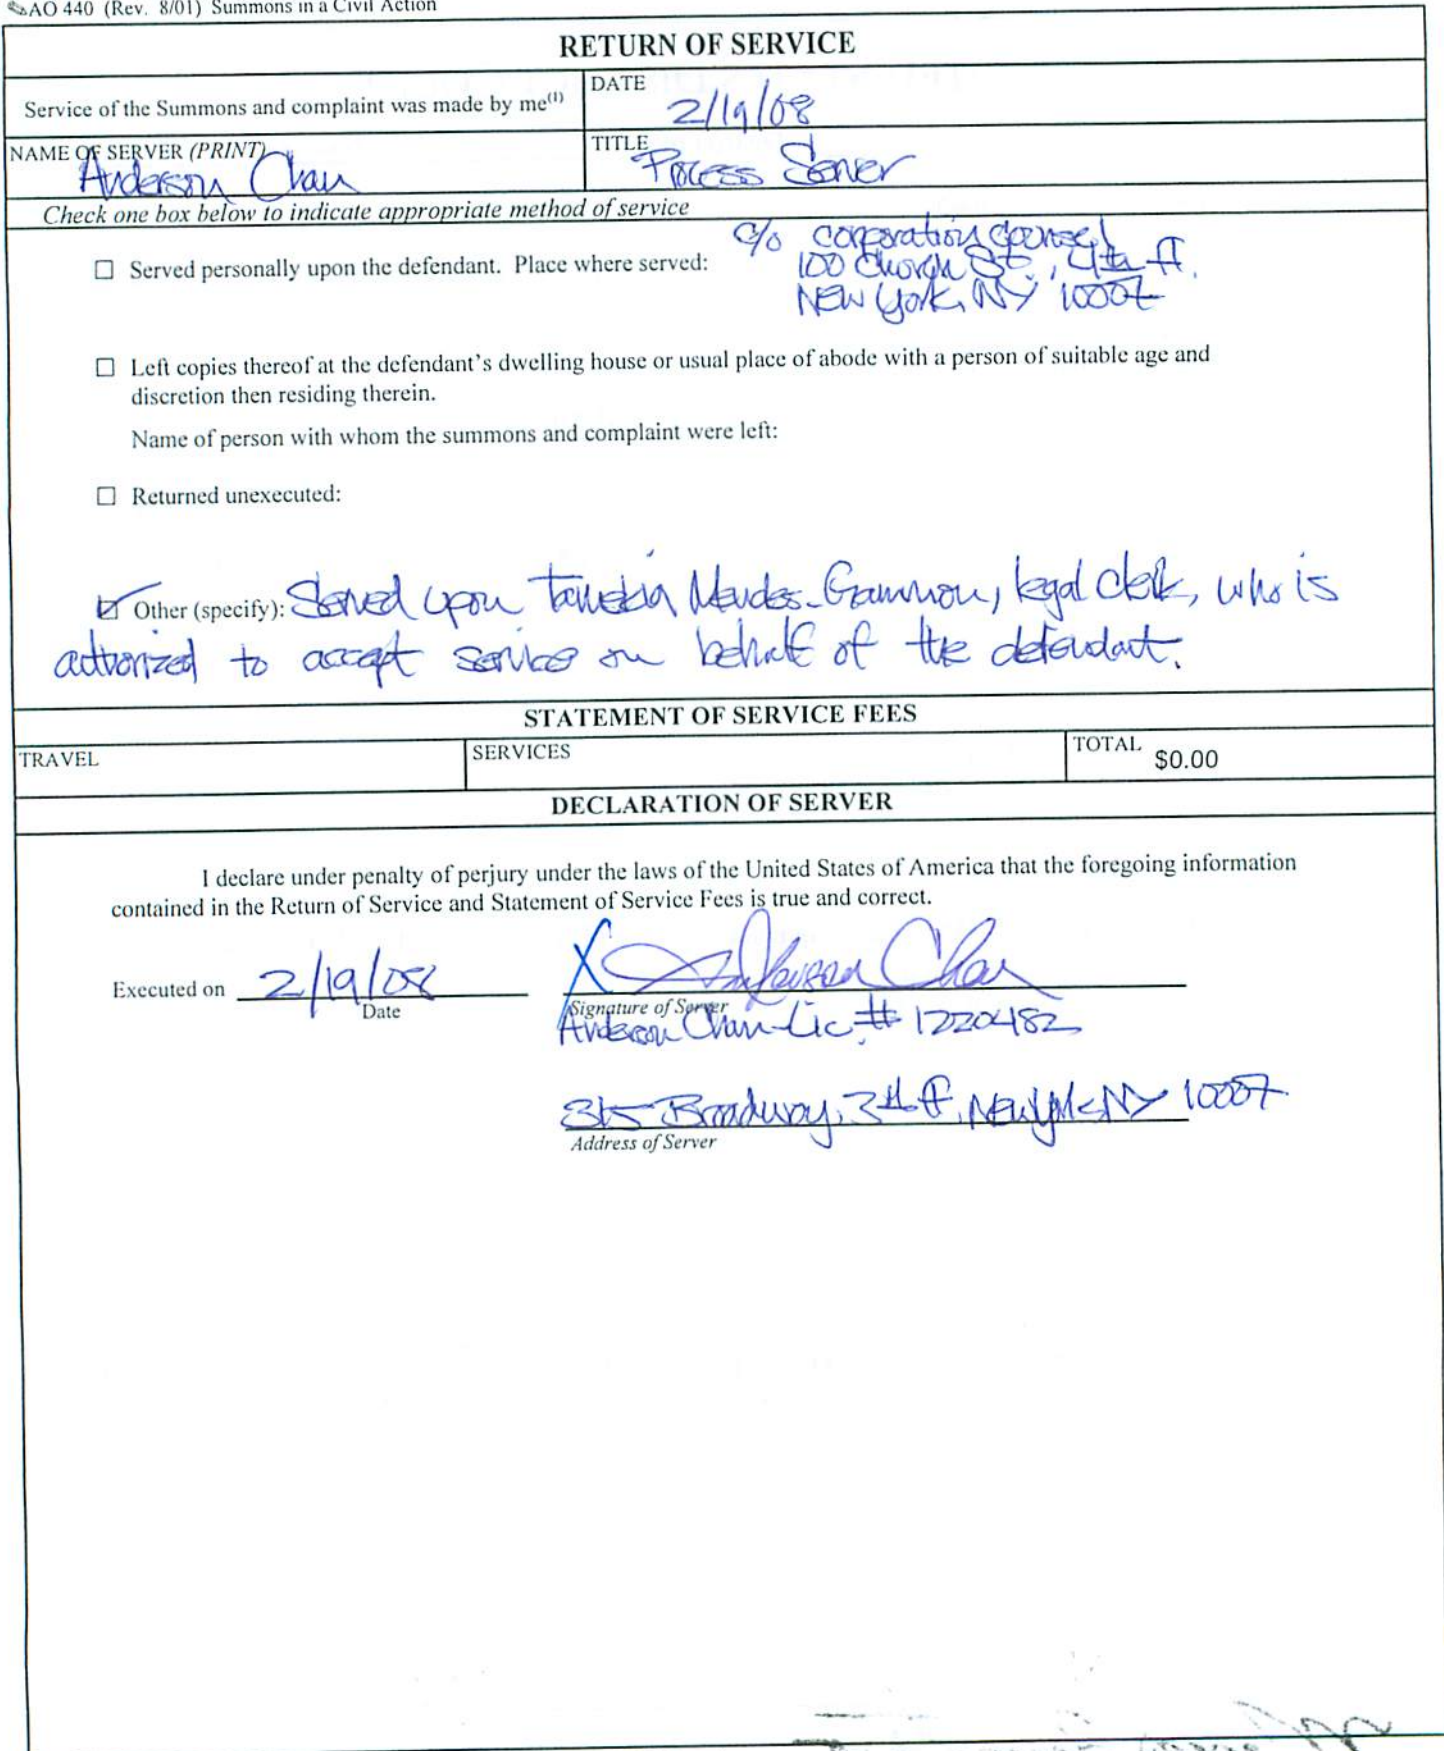 AO 440 (Rev. 8/01) Summons in a Civil Action
RETURN OF SERVICE
Service of the Summons and complaint was made by me(1)
DATE
2/19/08
NAME OF SERVER (PRINT)
Anderson Chan
TITLE
Process Server
Check one box below to indicate appropriate method of service
☐ Served personally upon the defendant. Place where served:
c/o corporation counsel
100 Church St., 4th fl.
New York, NY 10007
☐ Left copies thereof at the defendant's dwelling house or usual place of abode with a person of suitable age and
discretion then residing therein.
Name of person with whom the summons and complaint were left:
☐ Returned unexecuted:
☑ Other (specify): Served upon Mendes-Gammon, legal clerk, who is
authorized to accept service on behalf of the defendant.
STATEMENT OF SERVICE FEES
TRAVEL
SERVICES
TOTAL
$0.00
DECLARATION OF SERVER
I declare under penalty of perjury under the laws of the United States of America that the foregoing information
contained in the Return of Service and Statement of Service Fees is true and correct.
Executed on 2/19/08
Date
X Anderson Chan
Signature of Server
Anderson Chan-Lic.# 1220482
315 Broadway, 3rd fl, New York NY 10007
Address of Server